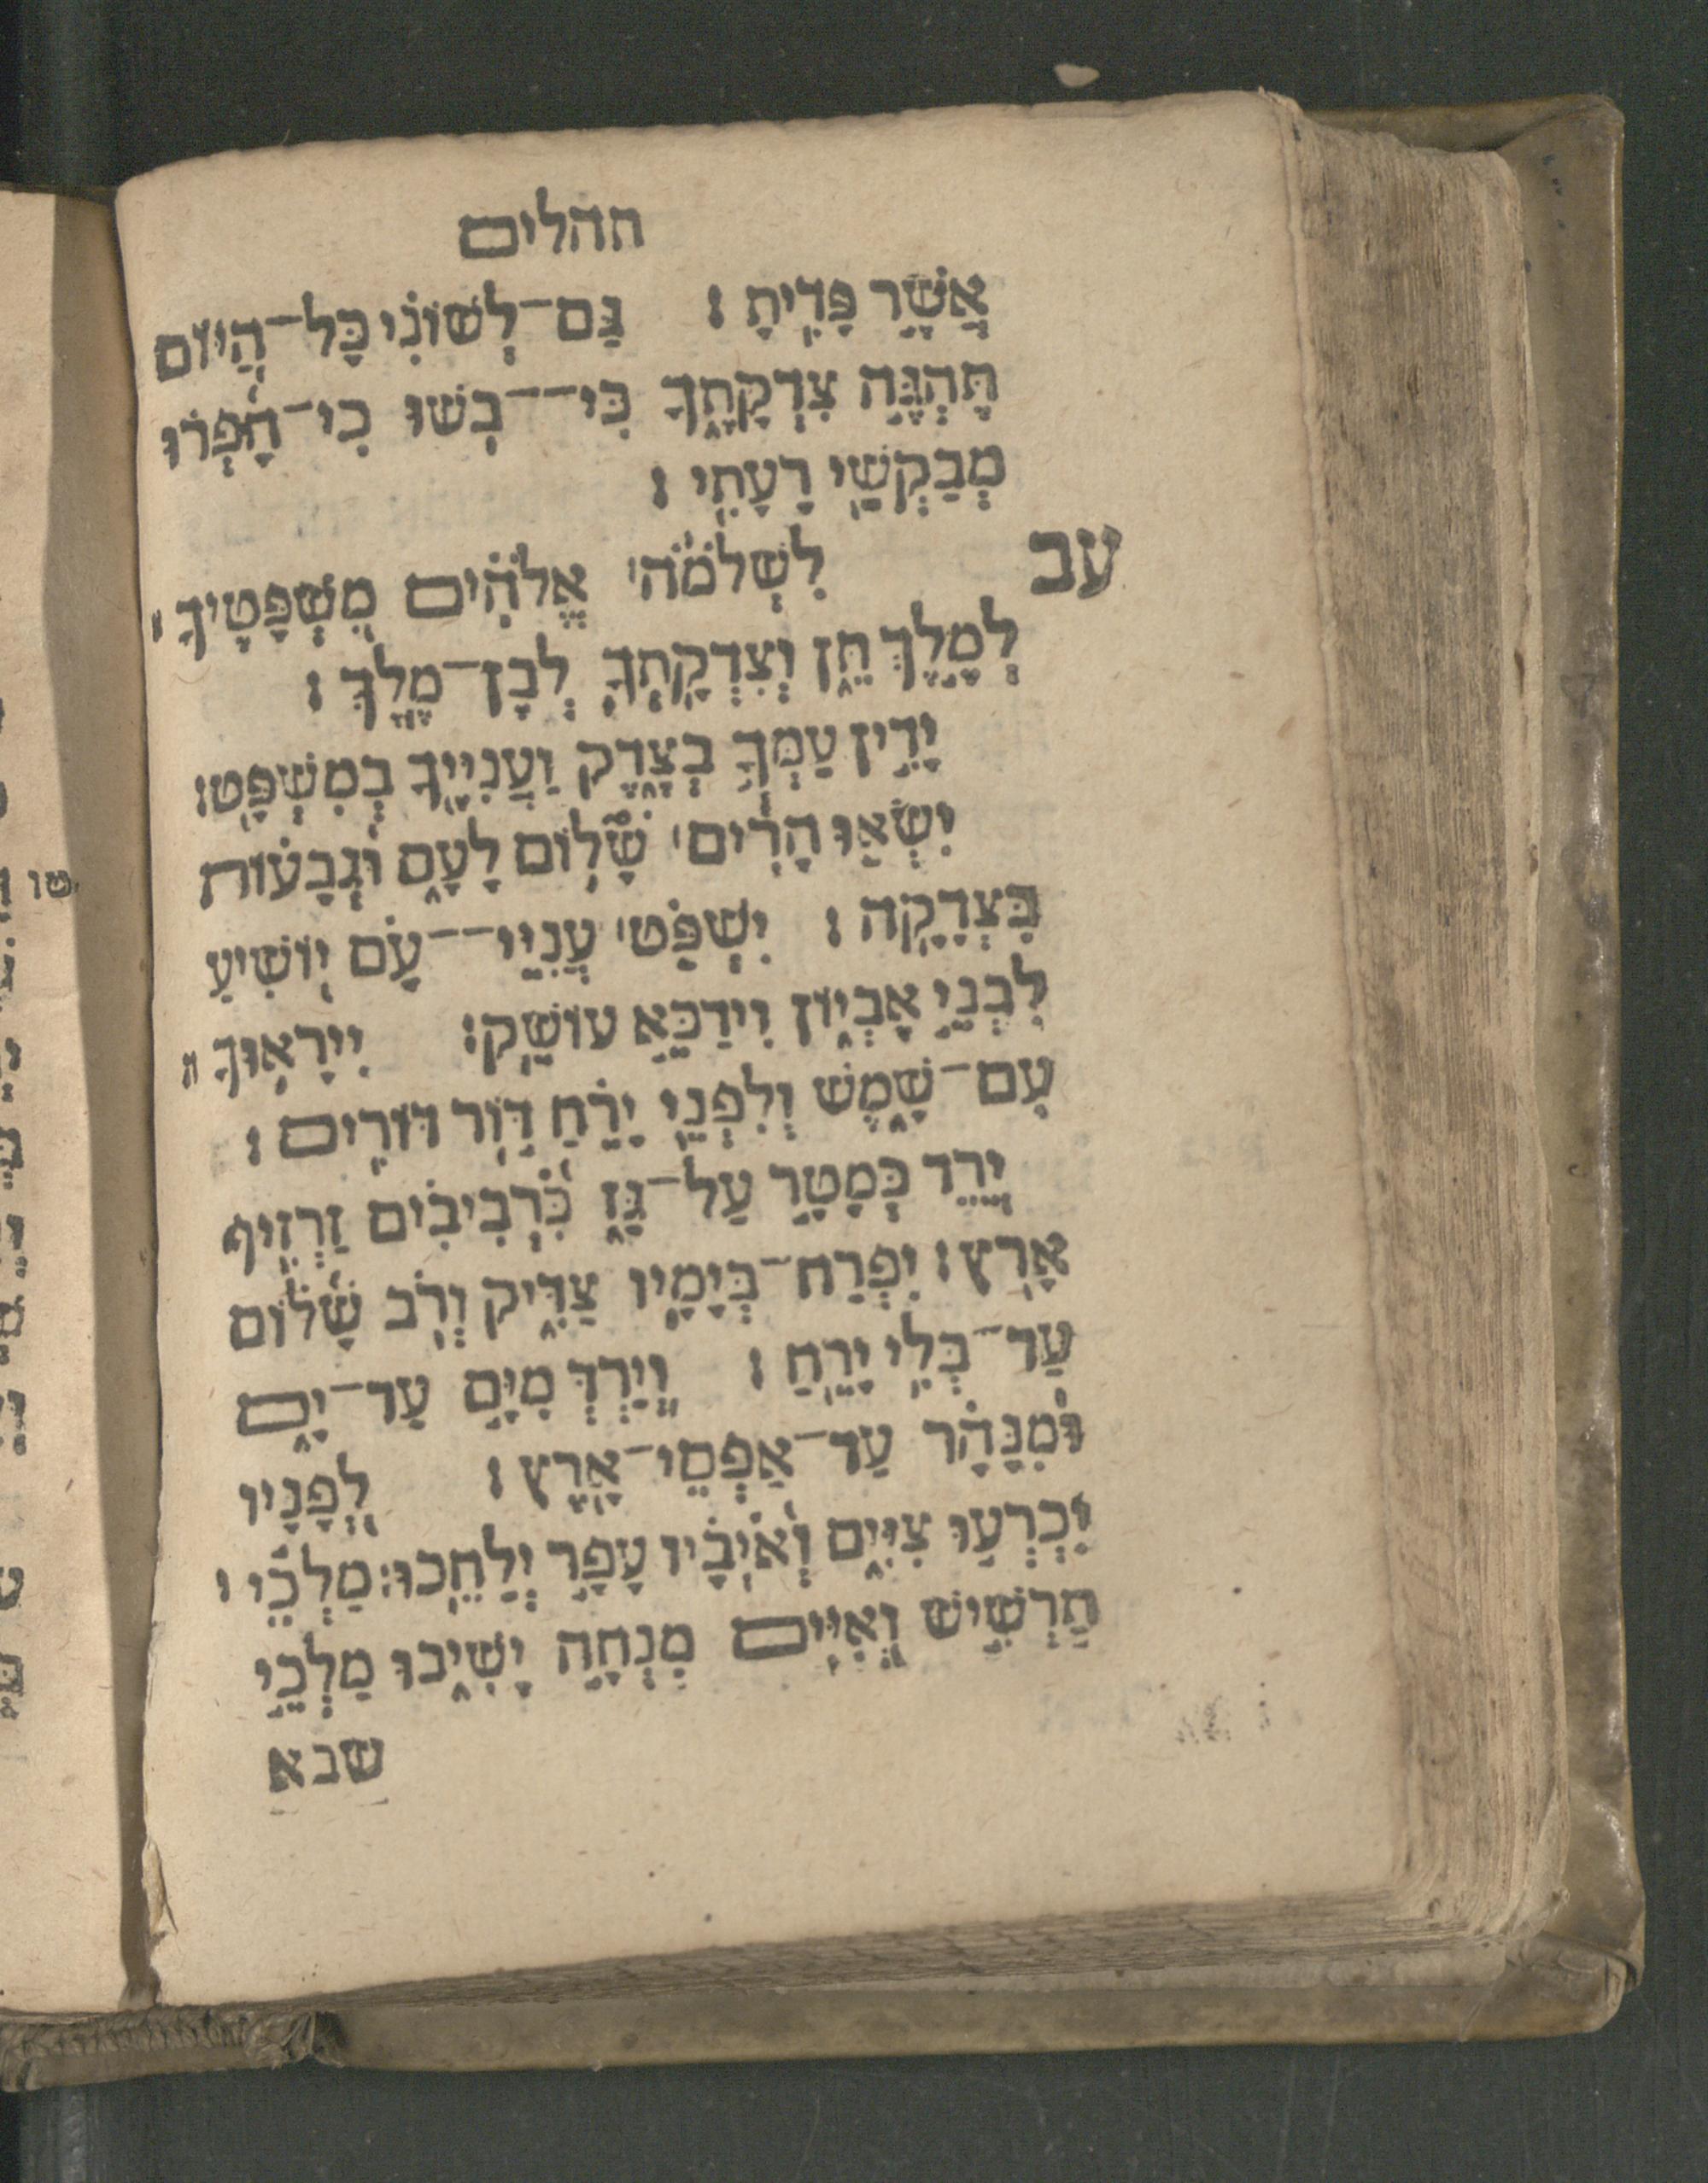 תהלים
אֲשֶׁר פָּדִיתָ׃ גַּם־לְשׁוֹנִי כָּל־הַיּוֹם
תֶּהְגֶּה צִדְקָתֶךָ כִּי־־בֹשׁוּ כִי־חָפְרוּ
מְבַקְשֵׁי רָעָתִי׃
עב לִשְׁלֹמֹה׀ אֱלֹהִים מִשְׁפָּטֶיךָ
לְמֶלֶךְ תֵּן וְצִדְקָתְךָ לְבֶן־מֶלֶךְ׃
יָדִין עַמְּךָ בְצֶדֶק וַעֲנִיֶּיךָ בְמִשְׁפָּט׃
יִשְׂאוּ הָרִים׀ שָׁלוֹם לָעָם וּגְבָעוֹת
בִּצְדָקָה׃ יִשְׁפֹּט׀ עֲנִיֵּי־־עָם יוֹשִׁיעַ
לִבְנֵי אֶבְיוֹן וִידַכֵּא עוֹשֵׁק׃ יִירָאוּךָ
עִם־שָׁמֶשׁ וְלִפְנֵי יָרֵחַ דּוֹר דּוֹרִים׃
יֵרֵד כְּמָטָר עַל־גֵּז כִּרְבִיבִים זַרְזִיף
אָרֶץ׃ יִפְרַח־בְּיָמָיו צַדִּיק וְרֹב שָׁלוֹם
עַד־בְּלִי יָרֵחַ׃ וְיֵרְדְּ מִיָּם עַד־יָם
וּמִנָּהָר עַד־אַפְסֵי־אָרֶץ׃ לְפָנָיו
יִכְרְעוּ צִיִּים וְאֹיְבָיו עָפָר יְלַחֵכוּ׃ מַלְכֵי׀
תַרְשִׁישׁ וְאִיִּים מִנְחָה יָשִׁיבוּ מַלְכֵי
שבא
טו